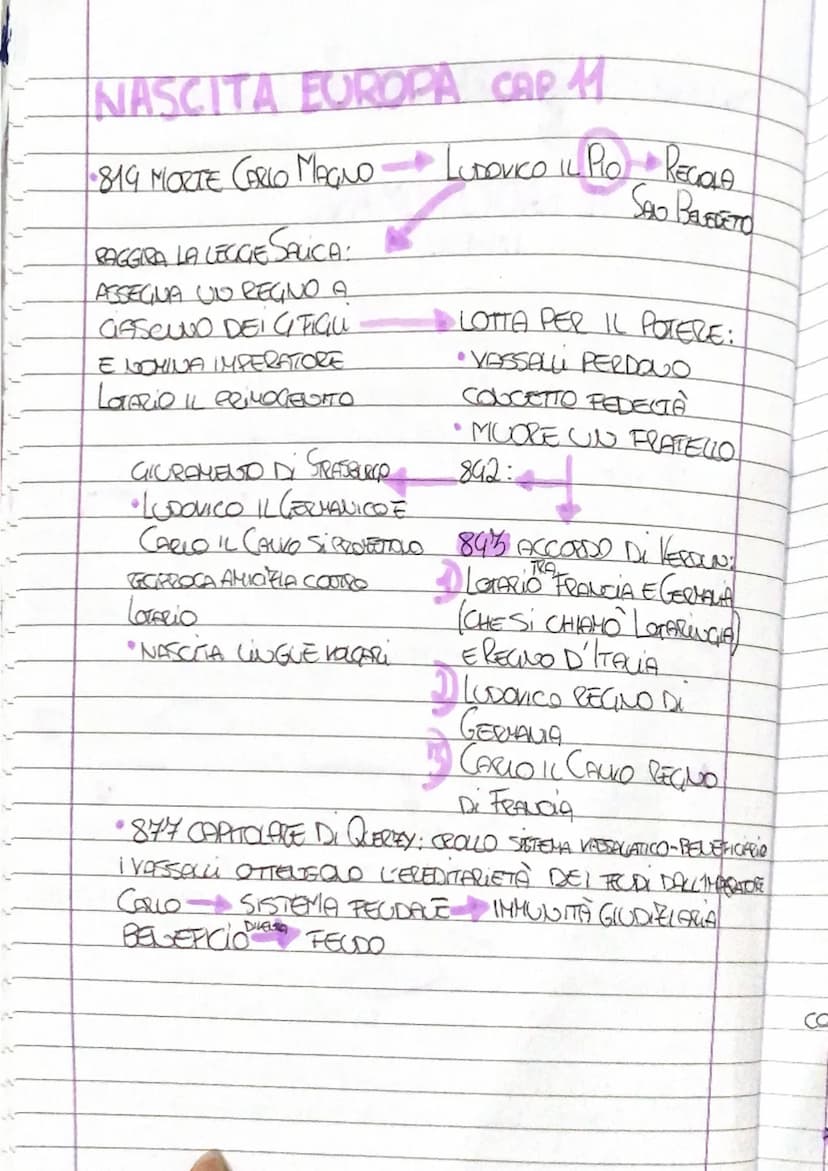 NASCITA EUROPA CAP 11
•819 MORTE CARLO MAGNO → LUDOVICO IL PIO → REGOLA
SAN BENEDETO
RAGGIRA LA LEGGIE SALICA:
ASSEGNA UN REGNO A
CIASCUNO DEI 4 FIGLI → LOTTA PER IL POTERE:
E NOMINA IMPERATORE
LOTARIO IL PRIMOGENITO
• VASSALLI PERDONO
CONCETTO FEDELTÀ
• MUORE UN FRATELLO
842:
GIURAMENTO DI STRASBURGO
• LUDOVICO IL GERMANICO E
CARLO IL CALVO SI PROMETTONO
RECIPROCA AMICIZIA CONTRO
LOTARIO
• NASCITA LINGUE VOLGARI
843 ACCORDO DI VERDUN:
1) LOTARIO TRA FRANCIA E GERMANIA
(CHE SI CHIAMÒ LOTARINGIA)
E REGNO D'ITALIA
2) LUDOVICO REGNO DI
GERMANIA
3) CARLO IL CALVO REGNO
DI FRANCIA
• 877 CAPITOLARE DI QUERZY: CROLLO SISTEMA VASSALATICO-BENEFICIARIO
I VASSALLI OTTENGONO L'EREDITARIETÀ DEI FEUDI DALL'IMPERATORE
CARLO → SISTEMA FEUDALE → IMMUNITÀ GIUDIZIARIA
BENEFICIO DIVENTA → FEUDO
CO